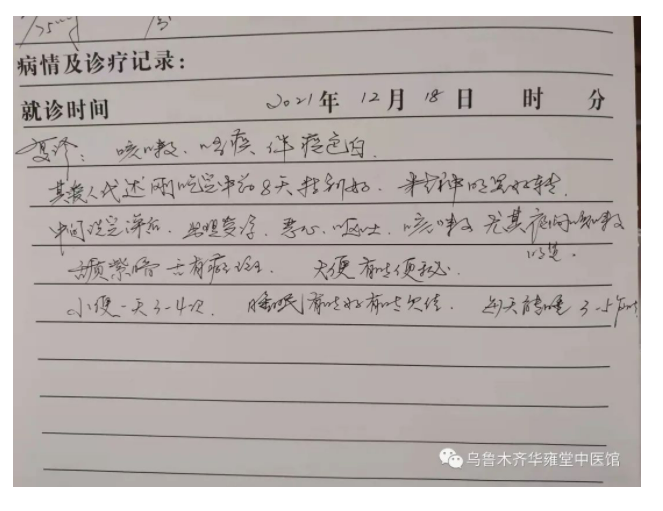 病情及诊疗记录:
就诊时间 2021年 12月 18日 时 分
复诊: 咳嗽、咯痰 伴痰色白.
其家人代述刚吃完中药8天特别好. 精神明显好转.
中间洗完澡后. 出现受凉. 恶心、呕吐. 咳嗽 尤其夜间咳嗽
明显.
舌质紫暗 舌有瘀斑. 大便有时便秘.
小便一天3-4次. 睡眠有时好有时欠佳. 白天能睡 3-5小时
乌鲁木齐华雍堂中医馆